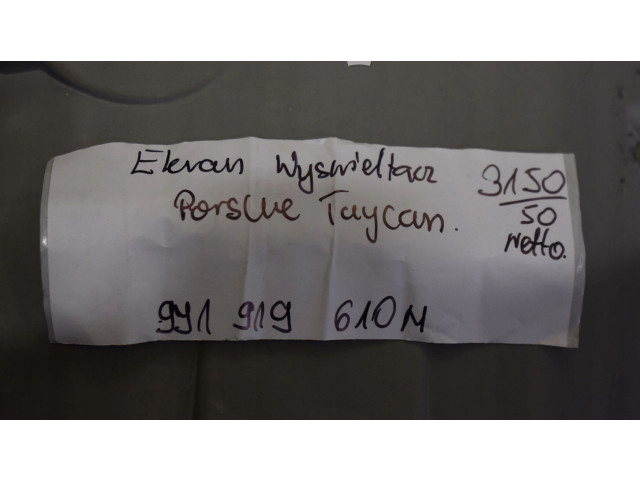 Ekran Wyświetlacz
Porsche Taycan.
3150
50
netto.
991 919 610M